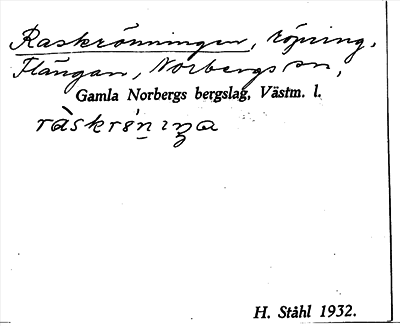 Raskrönningen, röjning,
Flängan, Norbergs sn,
Gamla Norbergs bergslag, Västm. l.
ràskrö́nıŋa
H. Ståhl 1932.